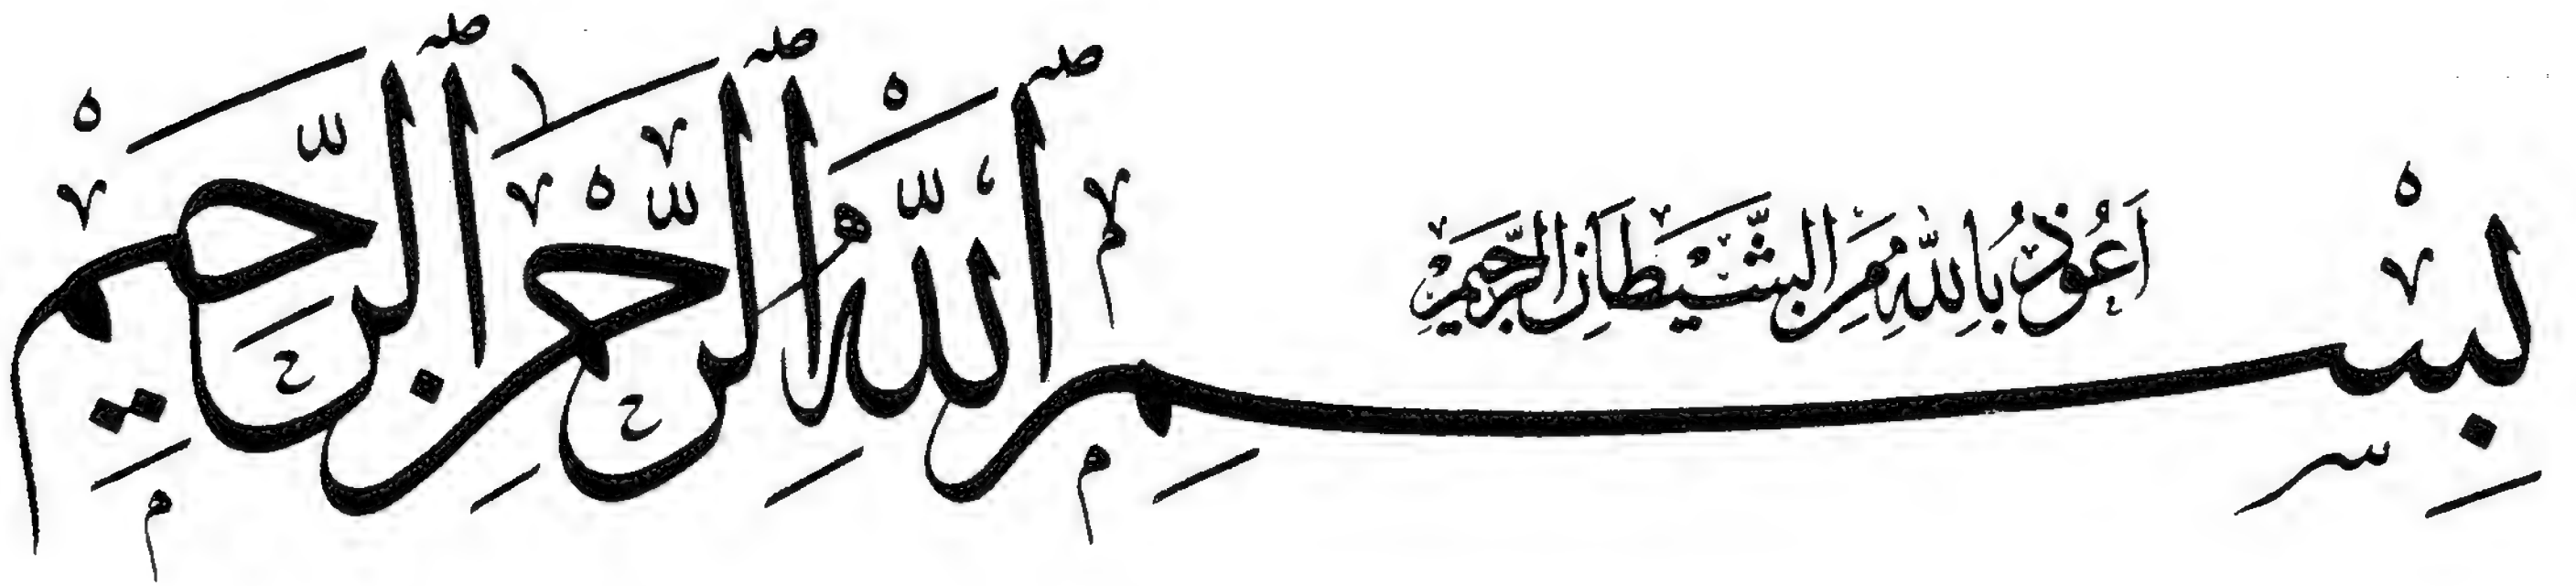 أَعُوذُ بِاللّٰهِ مِنَ الشَّيْطَانِ الرَّجِيمِ
بِسْمِ ٱللَّهِ ٱلرَّحْمَٰنِ ٱلرَّحِيمِ